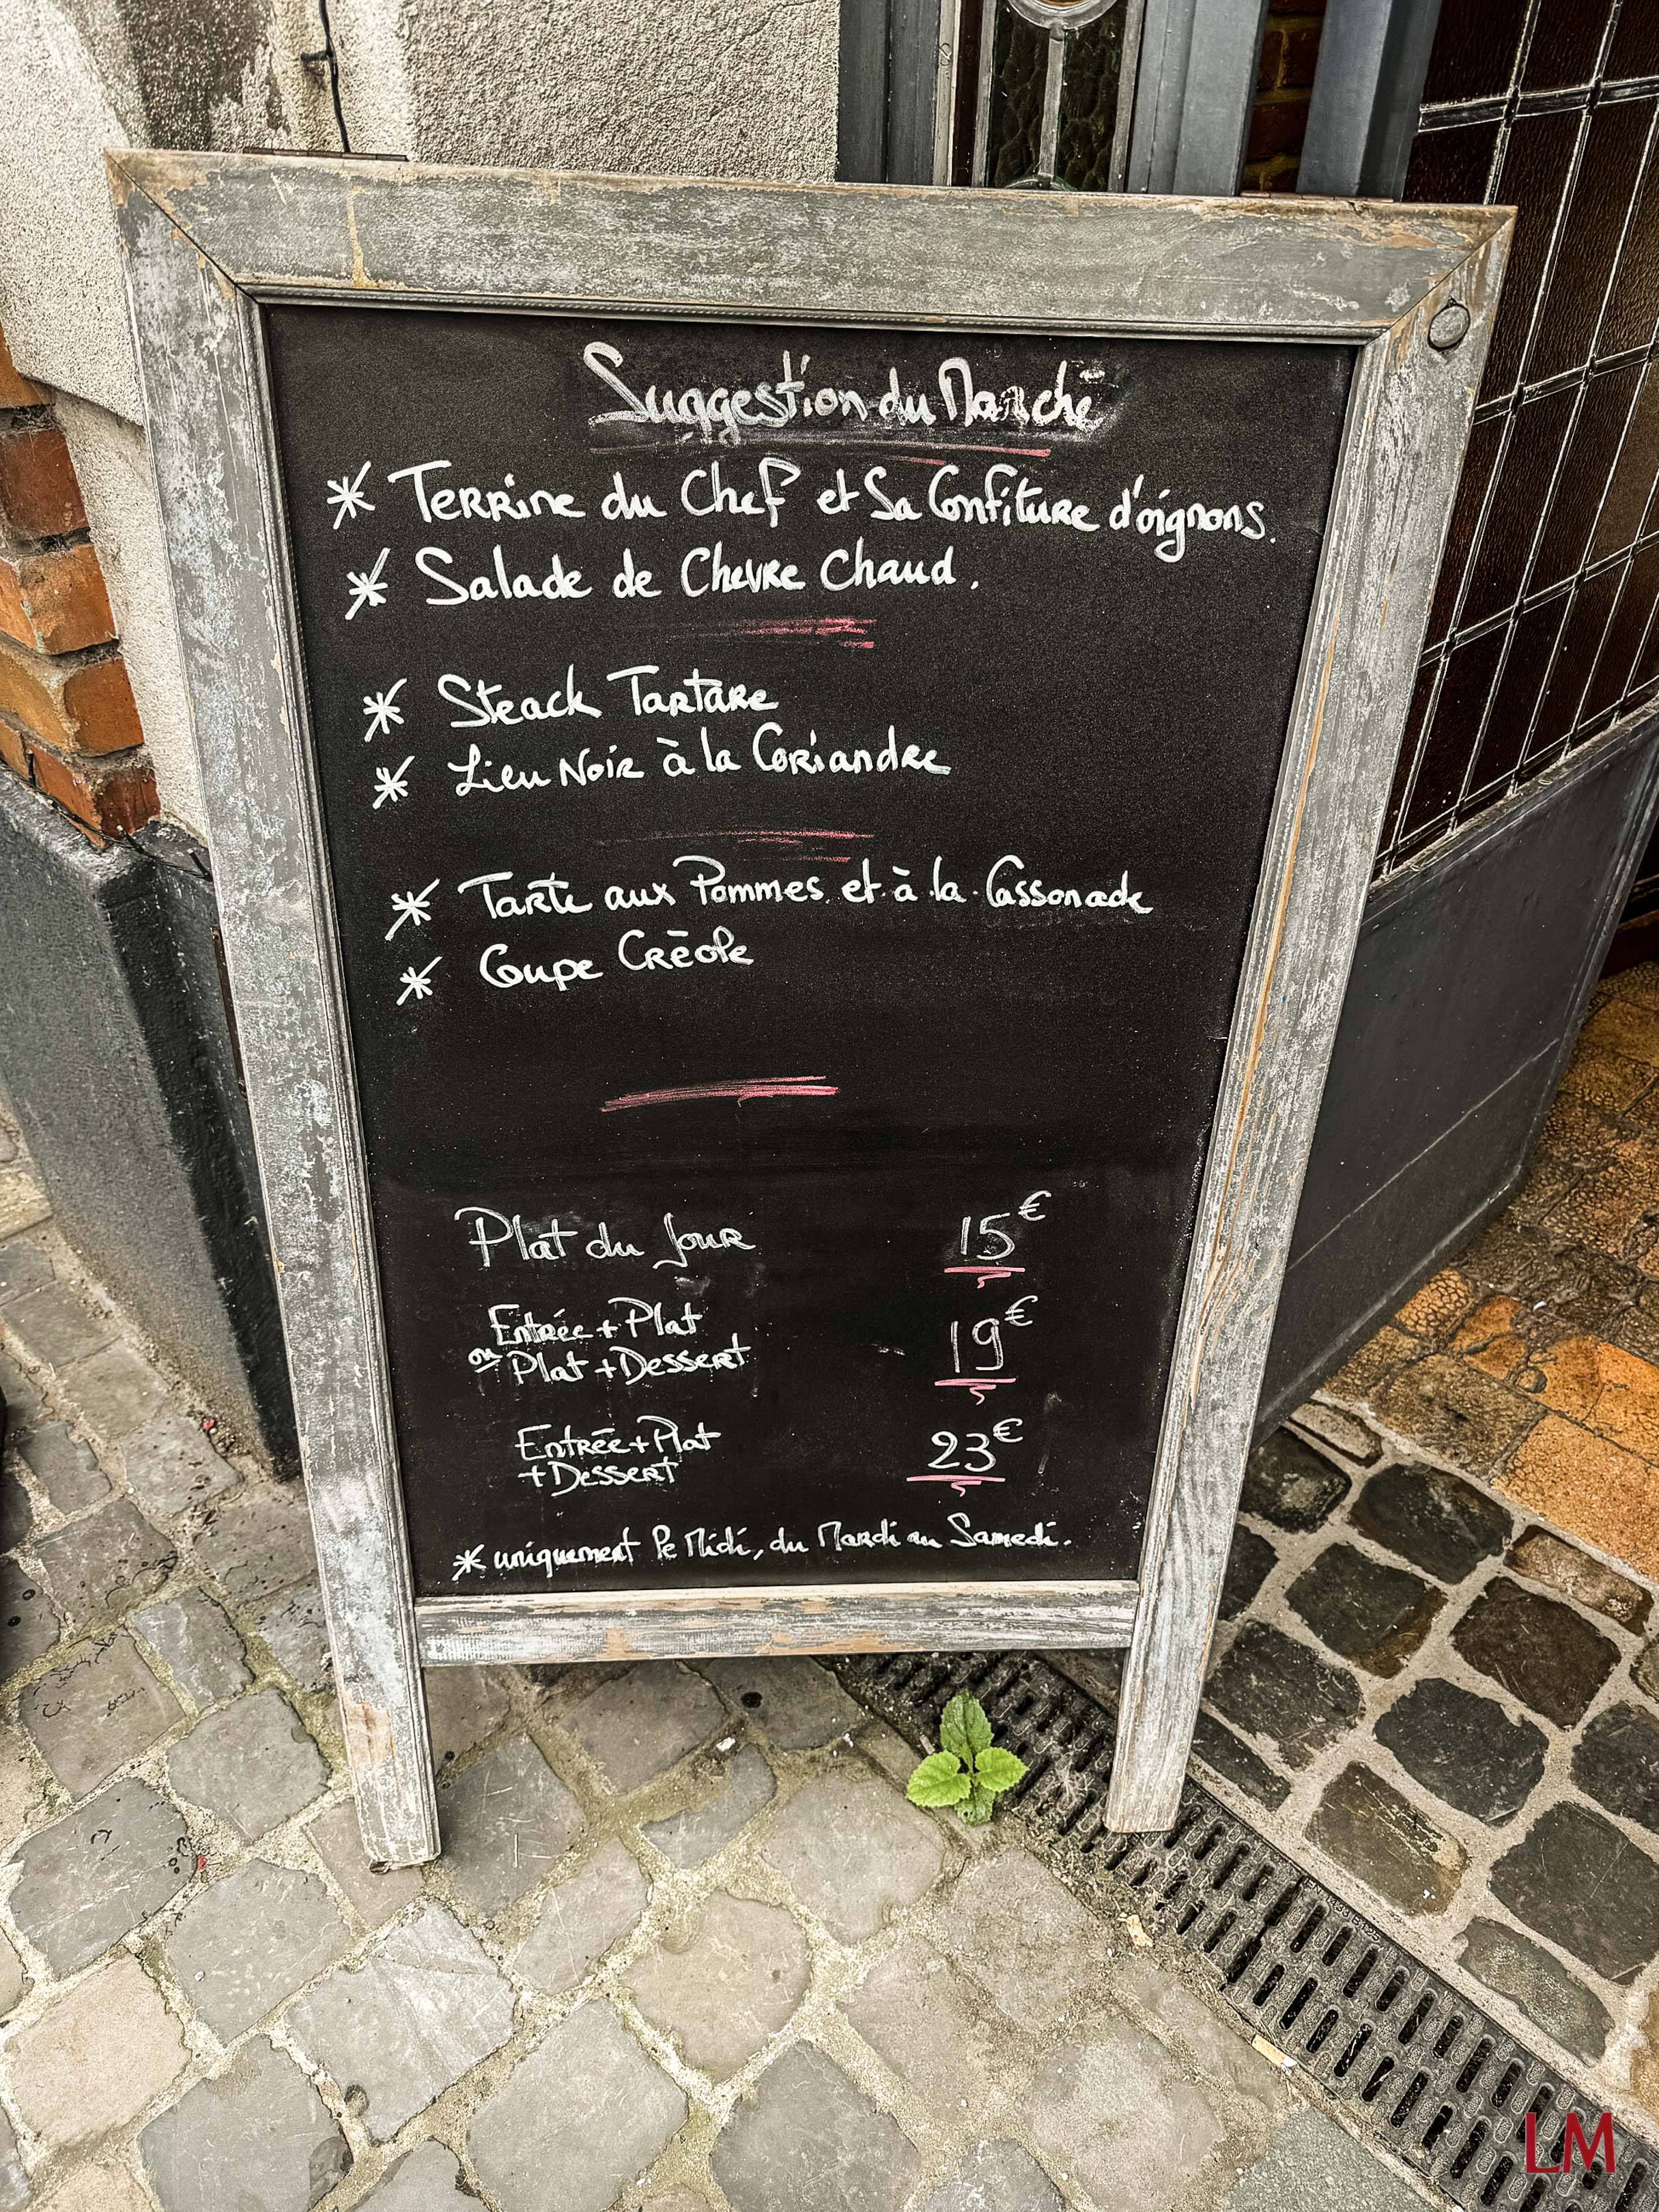 Suggestion du Marché
* Terrine du Chef et Sa Confiture d'oignons.
* Salade de Chevre Chaud.
* Steack Tartare
* Lieu Noir à la Coriandre
* Tarte aux Pommes et à la Cassonade
* Coupe Créole
Plat du Jour 15€
Entrée + Plat
ou Plat + Dessert 19€
Entrée + Plat
+ Dessert 23€
* uniquement le Midi, du Mardi au Samedi.
LM